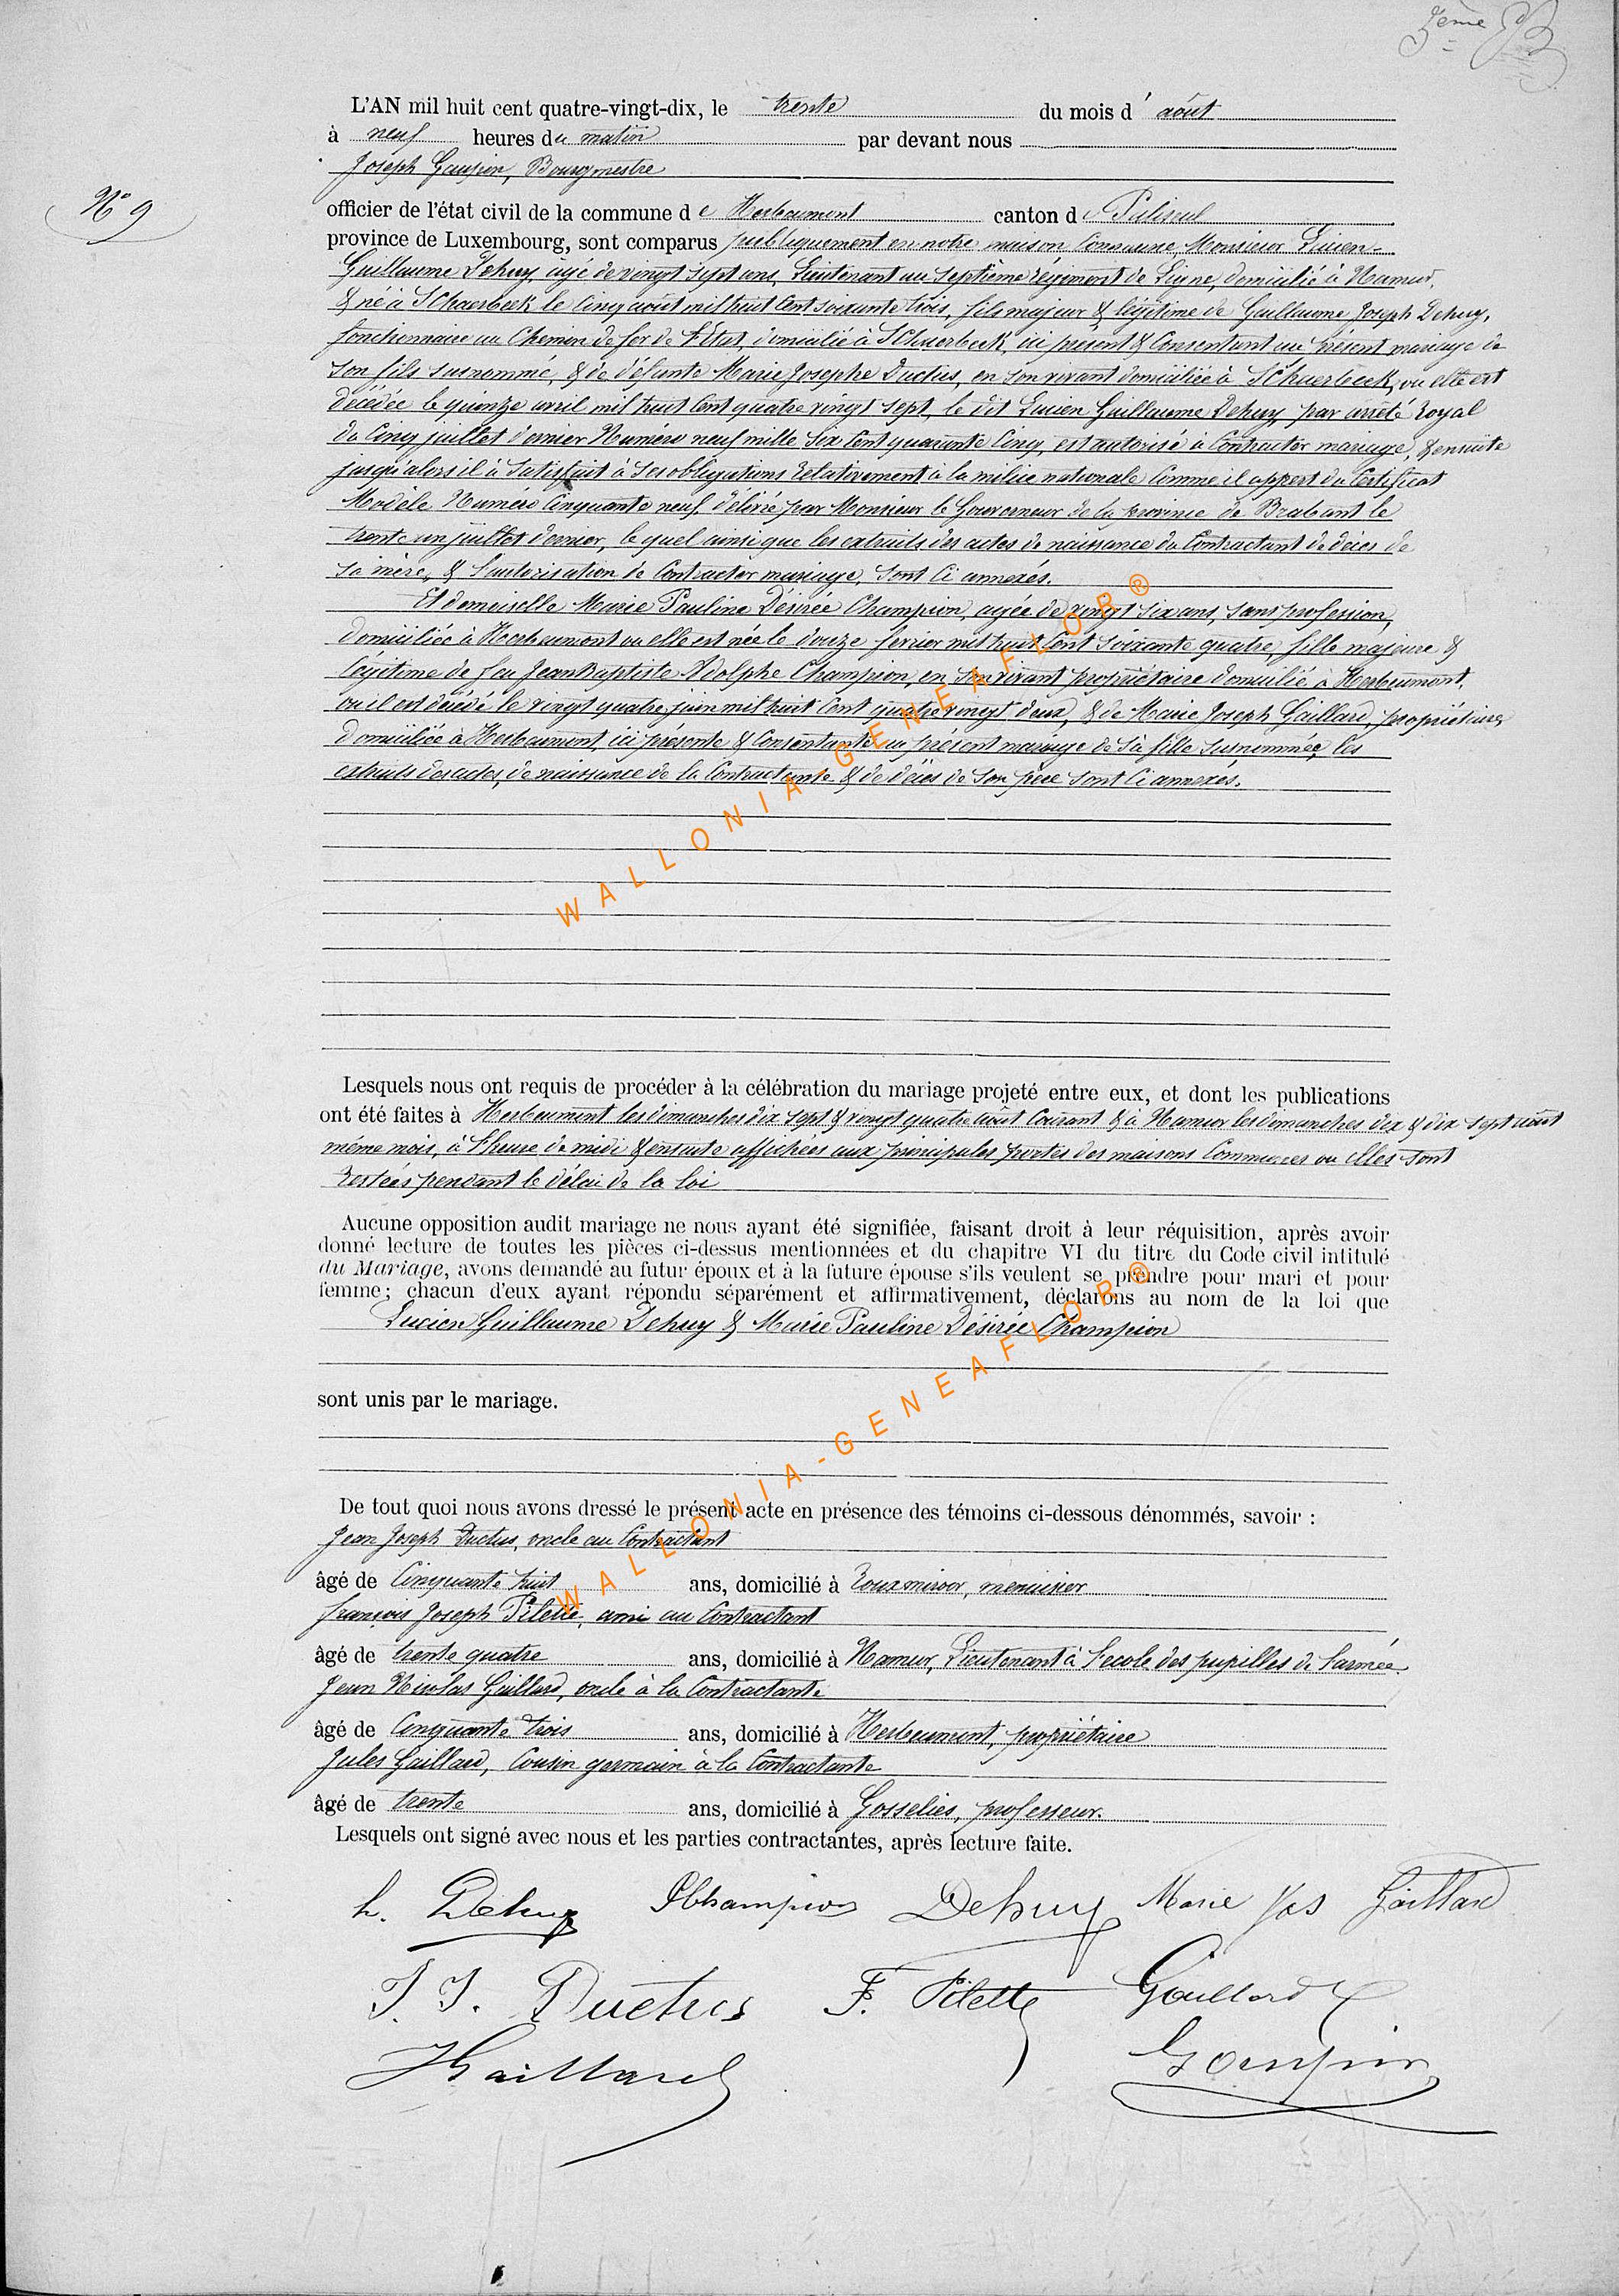 3ème
L'AN mil huit cent quatre-vingt-dix, le trente du mois d' août
à neuf heures du matin par devant nous
Joseph Goupin, Bourgmestre
N° 9
officier de l'état civil de la commune de Herbeumont canton de Paliseul
province de Luxembourg, sont comparus publiquement en notre maison Commune, Monsieur Lucien-
Guillaume Dehuy, agé de vingt sept ans, Lieutenant au septième régiment de Ligne, domicilié à Namur,
& né à SChaerbeek le Cinq aout mil huit Cent soixante trois, fils majeur & légitime de Guillaume Joseph Dehuy,
fonctionnaire au Chemin de fer de l'Etat, domicilié à SChaerbeek, ici présent & Consentant au présent mariage de
son fils susnommé, & de défunte Marie Josephe Ductus, en son vivant domiciliée à SChaerbeek, ou elle est
décédée le quinze avril mil huit Cent quatre vingt sept, le dit Lucien Guillaume Dehuy, par arrêté Royal
du Cinq juillet dernier Numéro neuf mille Six Cent quarante Cinq, est autorisé à Contracter mariage, & ensuite
jusqu'alors il à Satisfait à Ses obligations Relativement à la milice nationale Comme il appert du Certificat
Modèle Numéro Cinquante neuf, délivré par Monsieur le Gouverneur de la province de Brabant le
trente un juillet dernier, le quel ainsi que les extraits des actes de naissance du Contractant de déces de
sa mère, & l'autorisation de Contracter mariage, sont Ci annexés.
Et demoiselle Marie Pauline Désirée Champion, agée de vingt six ans, sans profession,
domiciliée à Herbeumont ou elle est née le douze fevrier mil huit Cent soixante quatre, fille majeure &
légitime de feu Jean Baptiste Adolphe Champion, en son vivant propriétaire domicilié à Herbeumont,
ou il est décédé le vingt quatre juin mil huit Cent quatre vingt deux, & de Marie Joseph Gaillard, propriétaire,
domiciliée à Herbeumont, ici présente & Consentante au présent mariage de sa fille susnommée, les
extraits des actes de naissance de la Contractante & de déces de Son père sont Ci annexés.
WALLONIA-GENEAFLOR®
Lesquels nous ont requis de procéder à la célébration du mariage projeté entre eux, et dont les publications
ont été faites à Herbeumont les dimanches dix sept & vingt quatre août Courant & à Namur les dimanches dix & dix sept août
même mois, à l'heure de midi & ensuite affichées aux principales portes des maisons Communes ou elles sont
restées pendant le délai de la loi
Aucune opposition audit mariage ne nous ayant été signifiée, faisant droit à leur réquisition, après avoir
donné lecture de toutes les pièces ci-dessus mentionnées et du chapitre VI du titre du Code civil intitulé
du Mariage, avons demandé au futur époux et à la future épouse s'ils veulent se prendre pour mari et pour
femme; chacun d'eux ayant répondu séparément et affirmativement, déclarons au nom de la loi que
Lucien Guillaume Dehuy & Marie Pauline Désirée Champion
sont unis par le mariage.
De tout quoi nous avons dressé le présent acte en présence des témoins ci-dessous dénommés, savoir :
Jean Joseph Ductus, oncle au Contractant
âgé de Cinquante huit ans, domicilié à Rouxmiroir, menuisier
François Joseph Pilette, ami au Contractant
âgé de trente quatre ans, domicilié à Namur, Lieutenant à l'ecole des pupilles de l'armée
Jean Nicolas Gaillard, oncle à la Contractante
âgé de Cinquante trois ans, domicilié à Herbeumont, propriétaire
Jules Gaillard, Cousin germain à la Contractante
âgé de trente ans, domicilié à Gosselies, professeur.
Lesquels ont signé avec nous et les parties contractantes, après lecture faite.
L. Dehuy Champion Dehuy Marie Jos Gaillard
J. J. Ductus F. Pilette Gaillard
JGaillard Goupin
WALLONIA-GENEAFLOR®